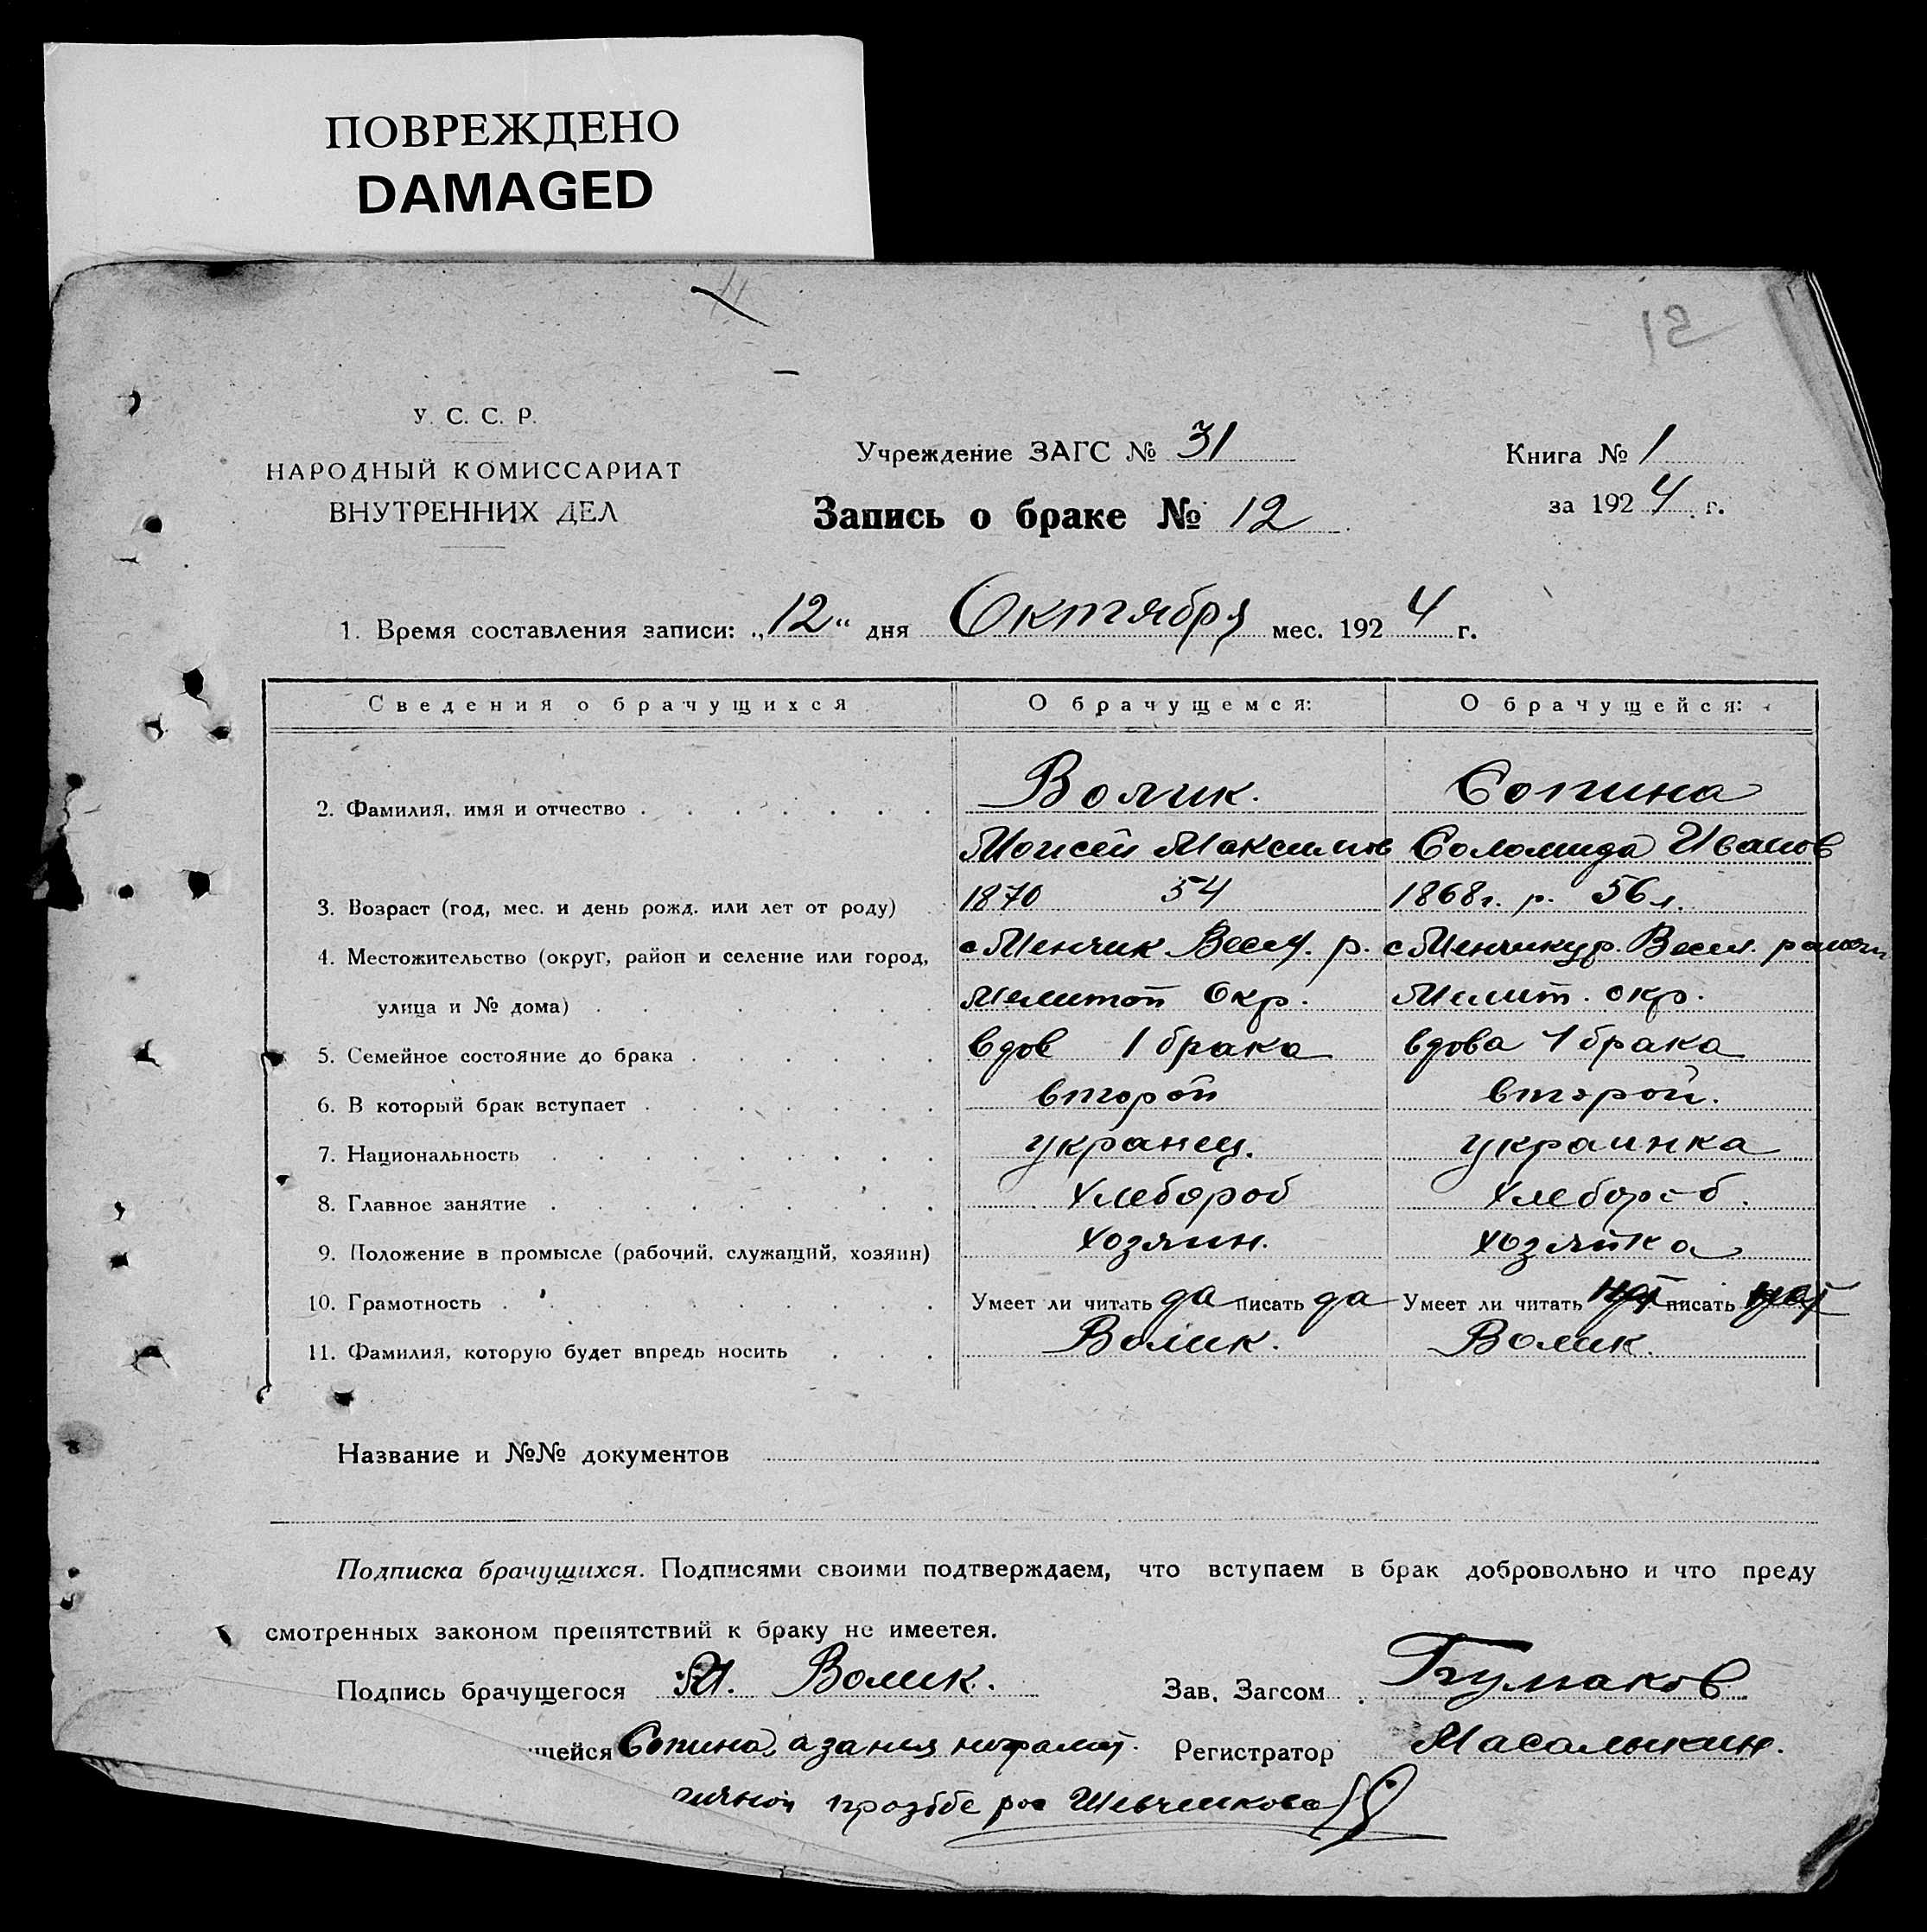 ПОВРЕЖДЕНО
DAMAGED
12
У. С. С. Р.
НАРОДНЫЙ КОМИССАРИАТ
ВНУТРЕННИХ ДЕЛ
Учреждение ЗАГС № 31
Книга № 1
Запись о браке № 12
за 1924 г.
1. Время составления записи: „12“ дня Октября мес. 1924 г.
Сведения о брачущихся О брачущемся: О брачущейся:
2. Фамилия, имя и отчество Волик. Сопина
Моисей Максимов Соломида Иванов
3. Возраст (год, мес. и день рожд. или лет от роду) 1870 54 1868г. р. 56 л.
4. Местожительство (округ, район и селение или город, с Менчик Весел. р. с Менчикур. Весел. район
улица и № дома) Мелитоп Окр. Мелит. окр.
5. Семейное состояние до брака вдов 1 брака вдова 1 брака
6. В который брак вступает второй второй.
7. Национальность укранец. украинка
8. Главное занятие хлебороб хлебороб.
9. Положение в промысле (рабочий, служащий, хозяин) хозяин. хозяйка
10. Грамотность Умеет ли читать да писать да Умеет ли читать нет писать нет
11. Фамилия, которую будет впредь носить Волик. Волик.
Название и №№ документов
Подписка брачущихся. Подписями своими подтверждаем, что вступаем в брак добровольно и что преду
смотренных законом препятствий к браку не имеетея.
Подпись брачущегося М. Волик. Зав. Загсом
щейся Сопина, а за нея неграмот. Регистратор Масалыкин.
личной прозбе рос Шевченкова